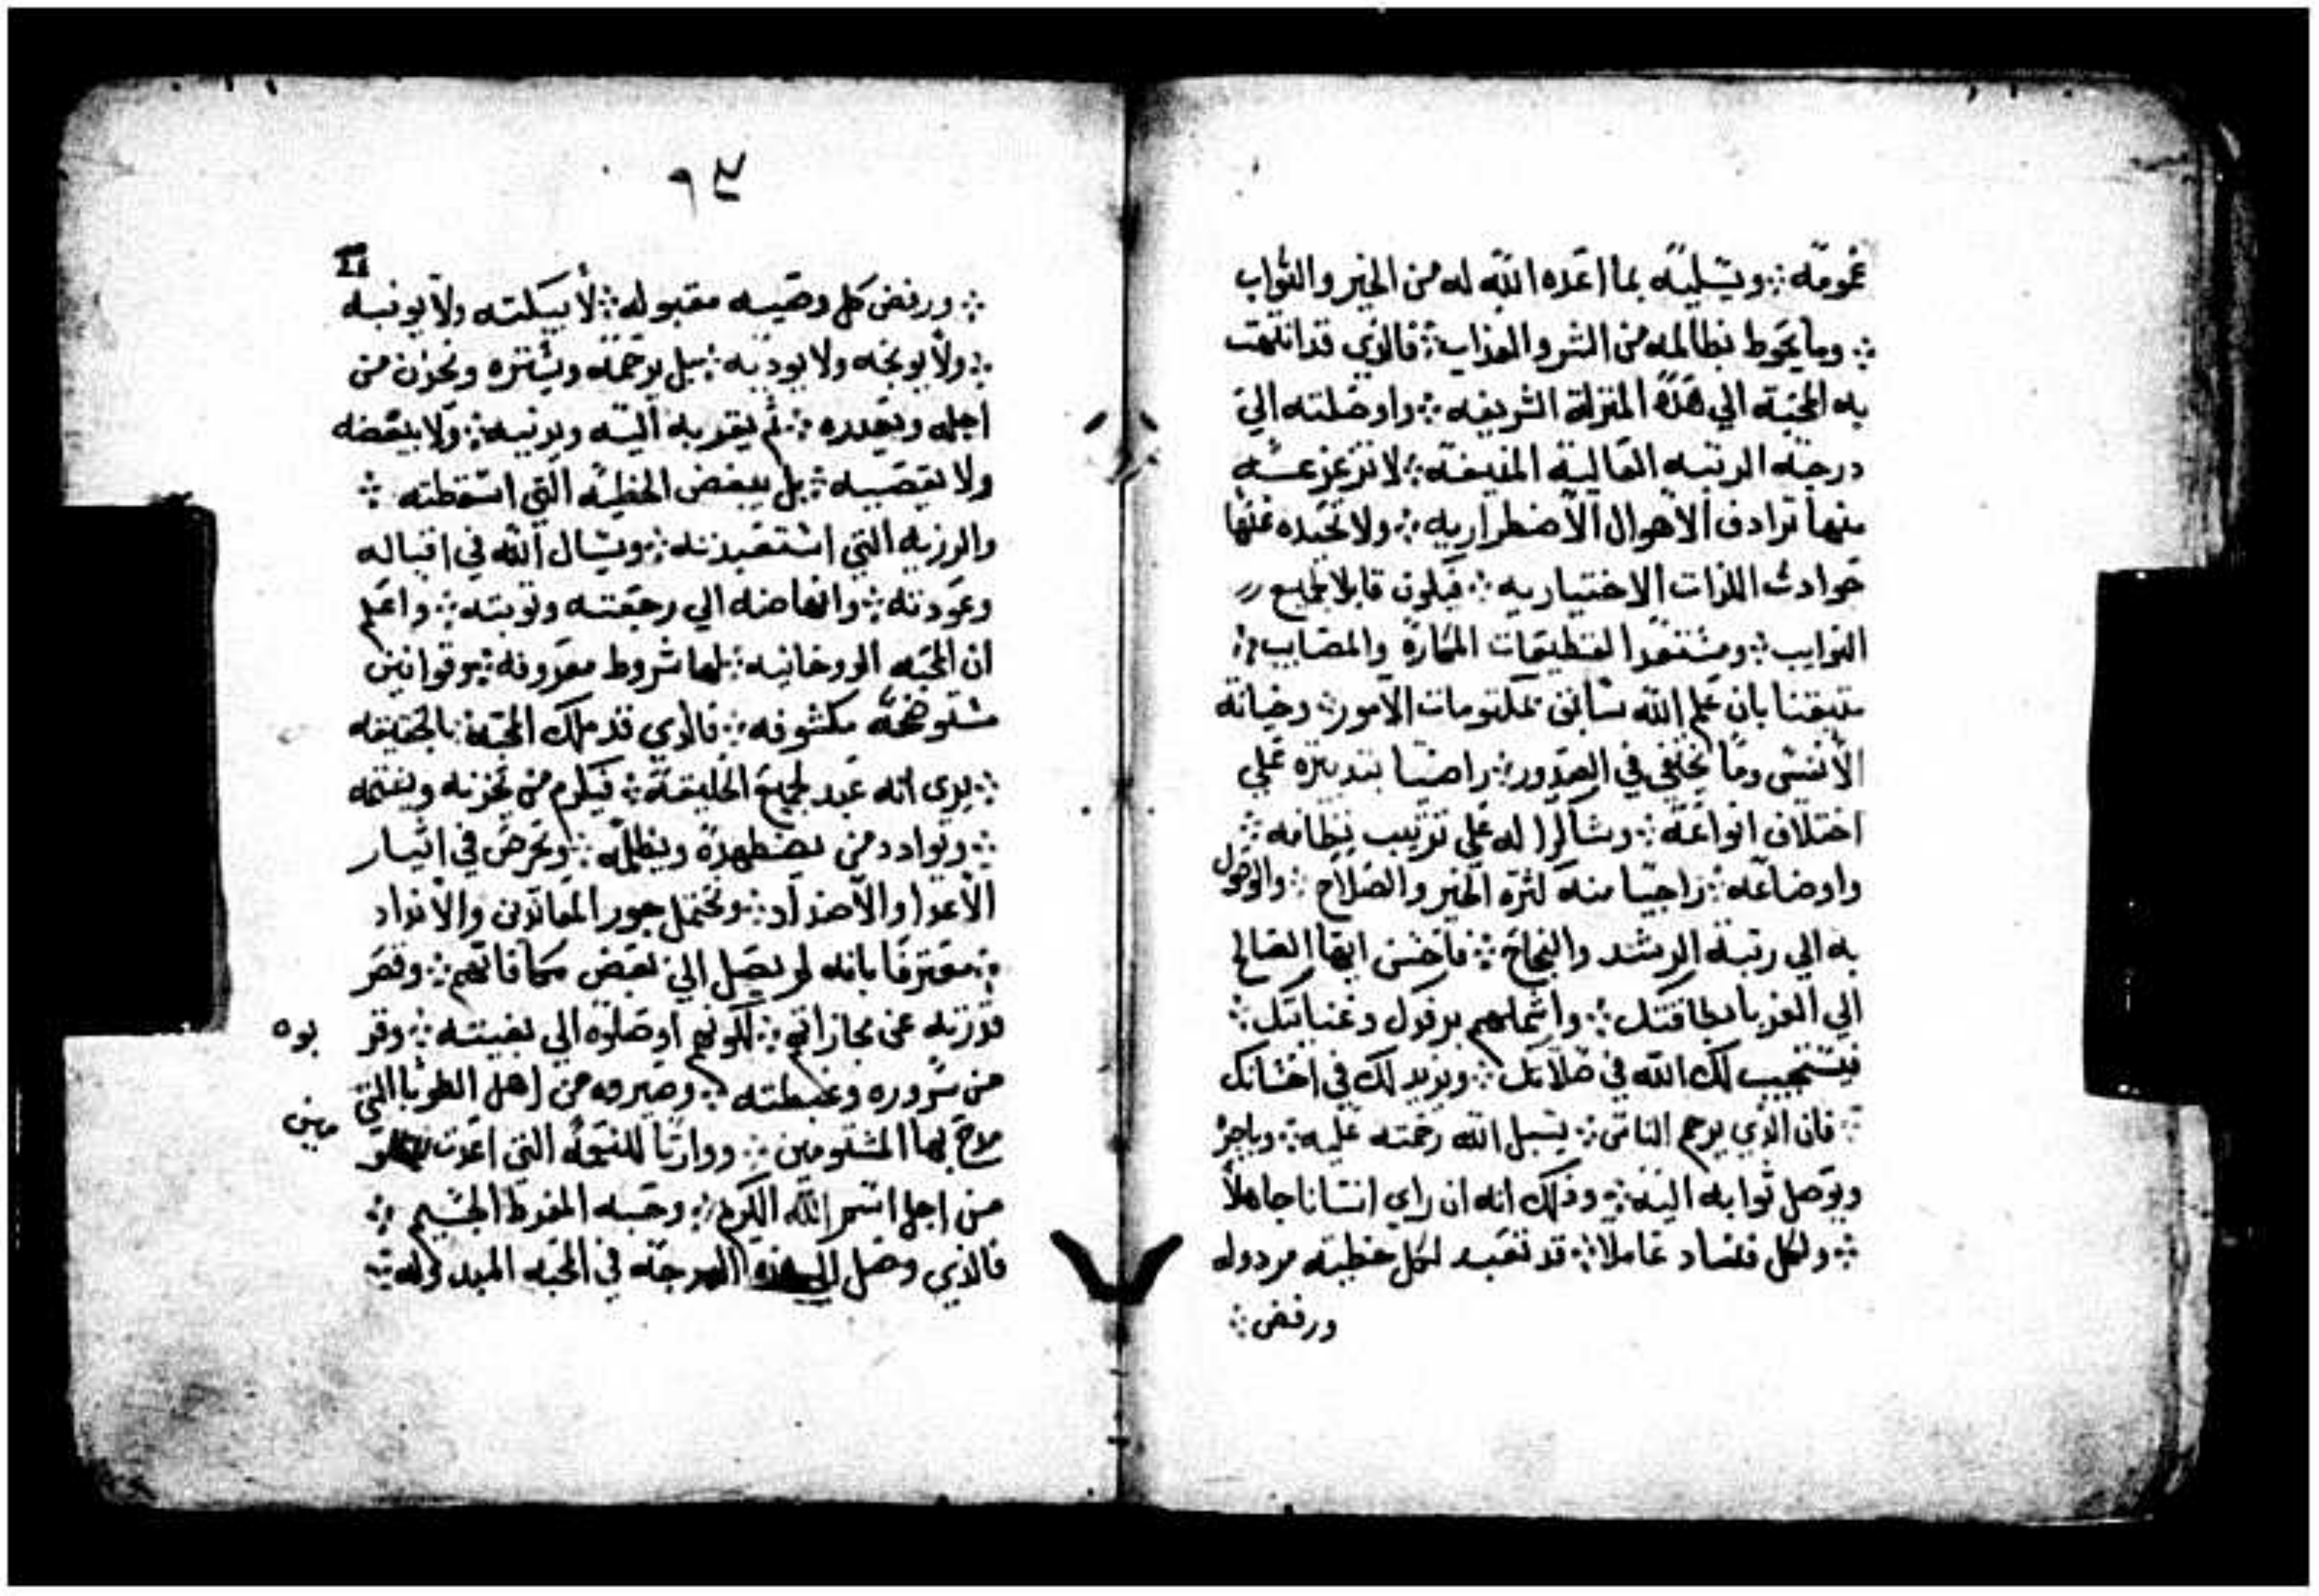 غمومه ⁘ ويسليه بما اعده الله له من الخير والثواب
⁘ وما يحوط بظالمه من الشر والعذاب ⁘ فالذي قد انتهت
به المحبة الي هذه المنزلة الشريفه ⁘ واوصلته الي
درجة الرتبه العالية المنيفة ⁘ لا تزعزعه
منها ترادف الاهوال الاضطراريه ⁘ ولا تحيده عنها
حوادث اللذات الاختياريه ⁘ فيكون قابلا لجميع
النوايب ⁘ المكاره والمصايب ⁘
متيقنا بان علم الله سابق بمكتومات الامور ⁘ وخيانة
الانفس وما يختفي في الصدور ⁘ راضيا بتدبيره علي
اختلاف انواعه ⁘ وشاكرا له علي ترتيب نظامه ⁘
واوضاعه ⁘ راجيا منه كثرة الخير والصلاح ⁘ والوصول
به الي رتبة الرشد والنجاح ⁘ فاحسن ايها الصالح
الي الغربا بطاقتك ⁘ واشملهم برفدك وعنايتك ⁘
فيستجيب لك الله في صلاتك ⁘ ويزيد لك في احسانك
⁘ فان الذي يرحم الناس ⁘ يسبل الله رحمته عليه ⁘
ويوصل ثوابه اليه ⁘ وذلك انه ان راي انسانا جاهلا
⁘ ولكل فساد عاملا ⁘ قد تعبد لكل خطيه مردوله
ورفض ⁘
⁘ ورفض كل وصيه مقبوله ⁘ لا يبكته ولا يونبه
⁘ ولا يوبخه ولا يودبه ⁘ بل يرحمه ويستره ويحزن من
اجله ويعدره ⁘ ثم يقربه اليه ويدنيه ⁘ ولا يبغضه
ولا يقصيه ⁘ بل يبغض الخطيه التي اسقطته ⁘
والرزيه التي استعبدته ⁘ ويسال الله في اقباله
وعودته ⁘ وانهاضه الي رجعته وتوبته ⁘ واعلم
ان المحبه الروحانيه ⁘ لها شروط معروفه ⁘ وقوانين
مستوضحة مكشوفه ⁘ فالذي قد ملك المحبة بالحقيقه
⁘ يري انه عبد لجميع الخليقة ⁘ فيكرم من يحزنه ويغمه
⁘ ويوادد من يضطهده ويظلمه ⁘ ويحرص في ايثار
الاعدا والاضداد ⁘ ويحتمل جور المعاندين والانداد
⁘ معترفا بانه لم يصل الي بعض مكافاتهم ⁘ وقصر
قدرته عن مجازاتهم ⁘ لكونهم اوصلوه الي بغيته ⁘ وقر
بوه
من سروره وغبطته ⁘ وصيروه من اهل الطوبا التي
مدح بها المشتومين ⁘ ووارثا للنعمة التي اعدت
مين
من اجل اسم الله الكريم ⁘ وحبه المفرط الجسيم ⁘
فالذي وصل الي هذه الدرجه في المحبه